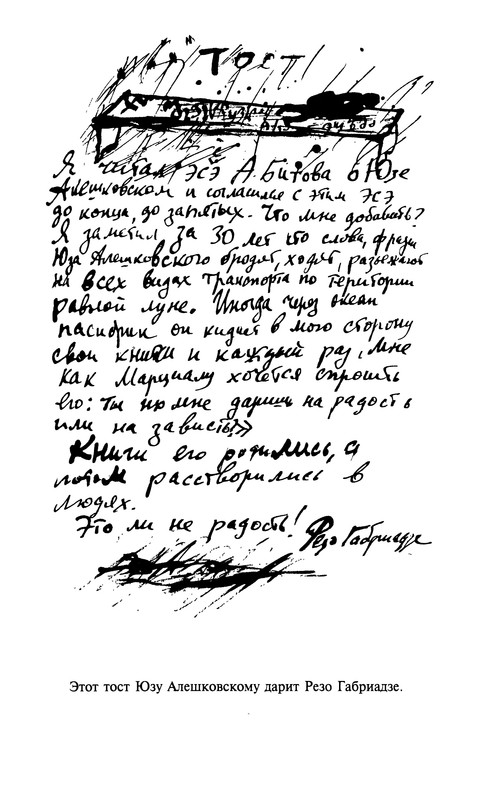 Тост!
Я читал эсэ А. Битова о Юзе
Алешковском и согласился с этим эсэ
до конца, до запятых. Что мне добавать?
Я заметил за 30 лет что слова, фразы
Юза Алешковского бродят, ходят, разъезжают
на всех видах транспорта по територии
равной луне. Иногда через океан
пасифик он кидает в мою сторону
свои книги и каждый раз, мне
как Марциалу хочется спросить
его: ты их мне даришь на радость
или на зависть?»
Книги его родились, а
потом расстворились в
людях.
Это ли не радость! Резо Габриадзе
Этот тост Юзу Алешковскому дарит Резо Габриадзе.